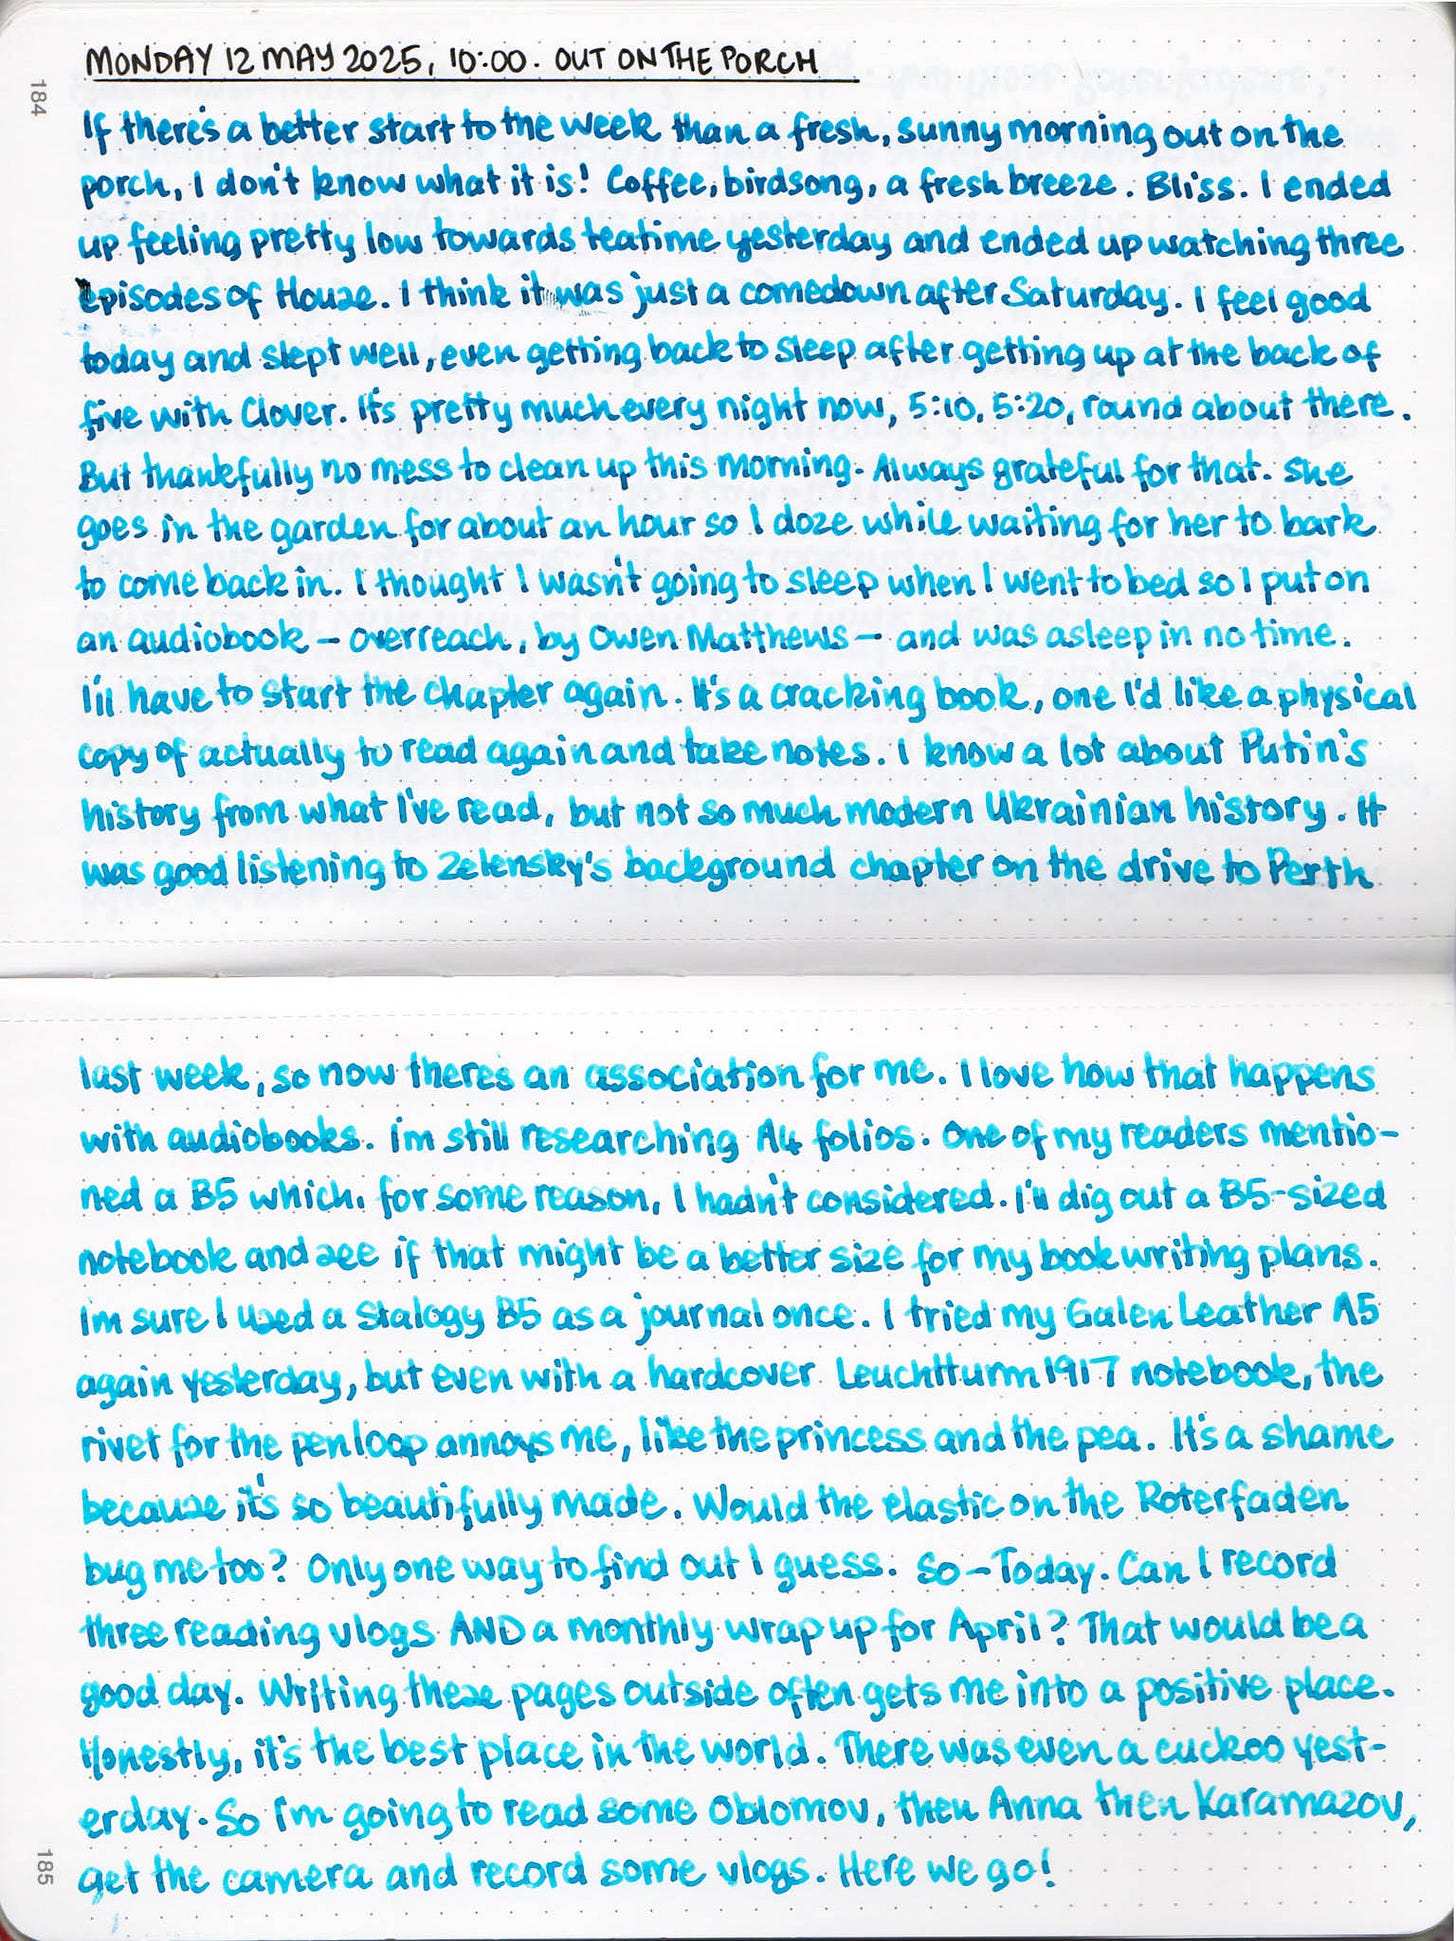 MONDAY 12 MAY 2025, 10:00. OUT ON THE PORCH
184
If there's a better start to the week than a fresh, sunny morning out on the
porch, I don't know what it is! Coffee, birdsong, a fresh breeze. Bliss. I ended
up feeling pretty low towards teatime yesterday and ended up watching three
episodes of House. I think it was just a comedown after Saturday. I feel good
today and slept well, even getting back to sleep after getting up at the back of
five with Clover. It's pretty much every night now, 5:10, 5:20, round about there.
But thankfully no mess to clean up this morning. Always grateful for that. She
goes in the garden for about an hour so I doze while waiting for her to bark
to come back in. I thought I wasn't going to sleep when I went to bed so I put on
an audiobook – Overreach, by Owen Matthews – and was asleep in no time.
I'll have to start the chapter again. It's a cracking book, one I'd like a physical
copy of actually to read again and take notes. I know a lot about Putin's
history from what I've read, but not so much modern Ukrainian history. It
was good listening to Zelensky's background chapter on the drive to Perth
last week, so now there's an association for me. I love how that happens
with audiobooks. I'm still researching A4 folios. One of my readers mentio-
ned a B5 which, for some reason, I hadn't considered. I'll dig out a B5-sized
notebook and see if that might be a better size for my book writing plans.
I'm sure I used a Stalogy B5 as a journal once. I tried my Galen Leather A5
again yesterday, but even with a hardcover Leuchtturm1917 notebook, the
rivet for the pen loop annoys me, like the princess and the pea. It's a shame
because it's so beautifully made. Would the elastic on the Roterfaden
bug me too? Only one way to find out I guess. So – Today. Can I record
three reading vlogs AND a monthly wrap up for April? That would be a
good day. Writing these pages outside often gets me into a positive place.
Honestly, it's the best place in the world. There was even a cuckoo yest-
erday. So I'm going to read some Oblomov, then Anna then Karamazov,
get the camera and record some vlogs. Here we go!
185